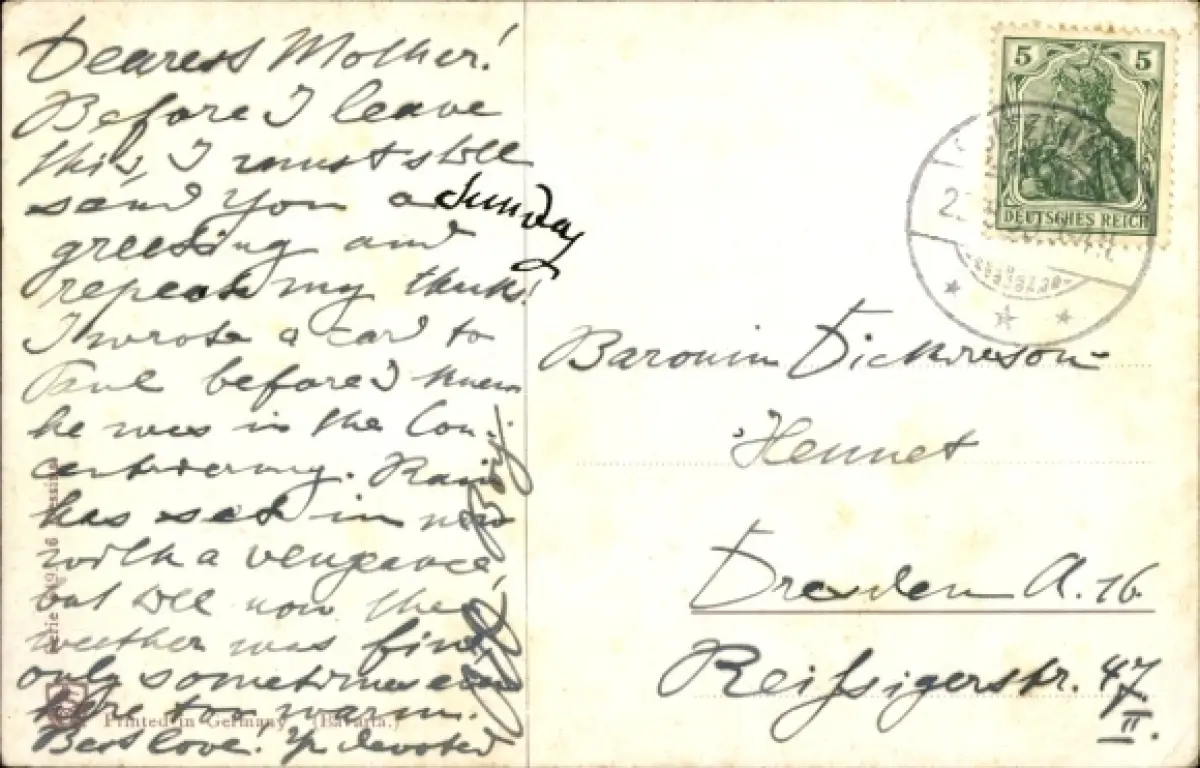 Dearest Mother!
Before I leave
this, I must still
send you a Sunday
greeting and
repeat my thanks!
I wrote a card to
Paul before I knew
he was in the Con-
centrierung. Rain
has set in now
with a vengeance,
but till now the
weather was fine,
only sometimes even
here too warm.
Best love! Yr devoted
Boy
Printed in Germany (Bavaria.)
Serie
5 5
DEUTSCHES REICH
Baronin Dickinson-
Hennet
Dresden A. 16
Reißigerstr. 47
II.